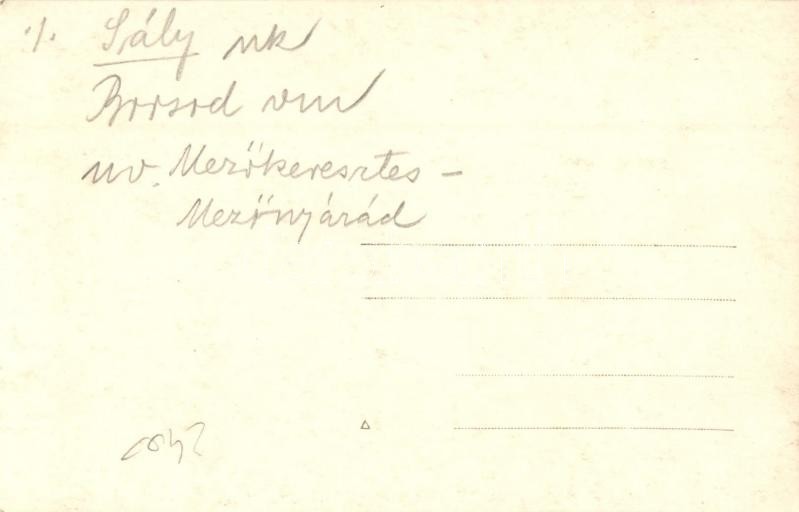 ·/· Sály nk
Borsod vm
uv. Mezőkeresztes –
Mezőnyárád